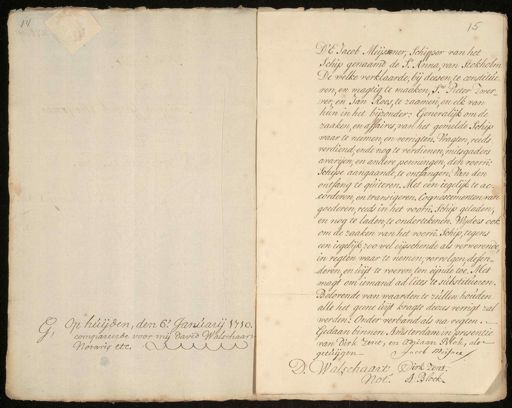 14
G, Op huijden, den 6.e Januarij 1710.
compareerde voor mij David Walschaart
Notaris etc.
15
D'E Jacob Meijsner, Schipper van het
Schip genaamd de S.t Anna, van Stokholm
De welke verklaarde, bij deesen, te constitue-
ren, en magtig te maaken, S.r Pieter
en Jan Roos, te zaamen, en elk van
hun in het bijzonder; Generalijk om de
zaaken, en affaires, van het gemelde Schip
waar te nemen, en verrigten. Vragten, reeds
verdiend, ende nog te verdienen, mitsgaders
avarijen, en andere penningen, den voorn.
Schipe aangaande, te ontfangen. Van den
ontfang te quiteren. Met een iegelijk te ac-
corderen, en transigeren. Cognossementen van
goederen, reeds in het voorn. Schip geladen,
en nog te laden, te ondertekenen. Wijders ook
om de zaaken van het voorn. Schip, tegens
een iegelijk, zoo wel eijschende als verwerende,
in regten waar te nemen, vervolgen, defen-
deren, en uijt te voeren, ten eijnde toe. Met
magt om iemand ad lites te substitueren.
Belovende van waarden te zullen houden
alle het gene uijt kragte deezes verrigt zal
werden. Onder verband als na regten.
Gedaan binnen Amsterdam in presentie
van Dirk Zent, en Adriaan Blok, als
getuijgen.
Jacob Meijsner
D. Walschaart Dirk Zent
Not. A. Block